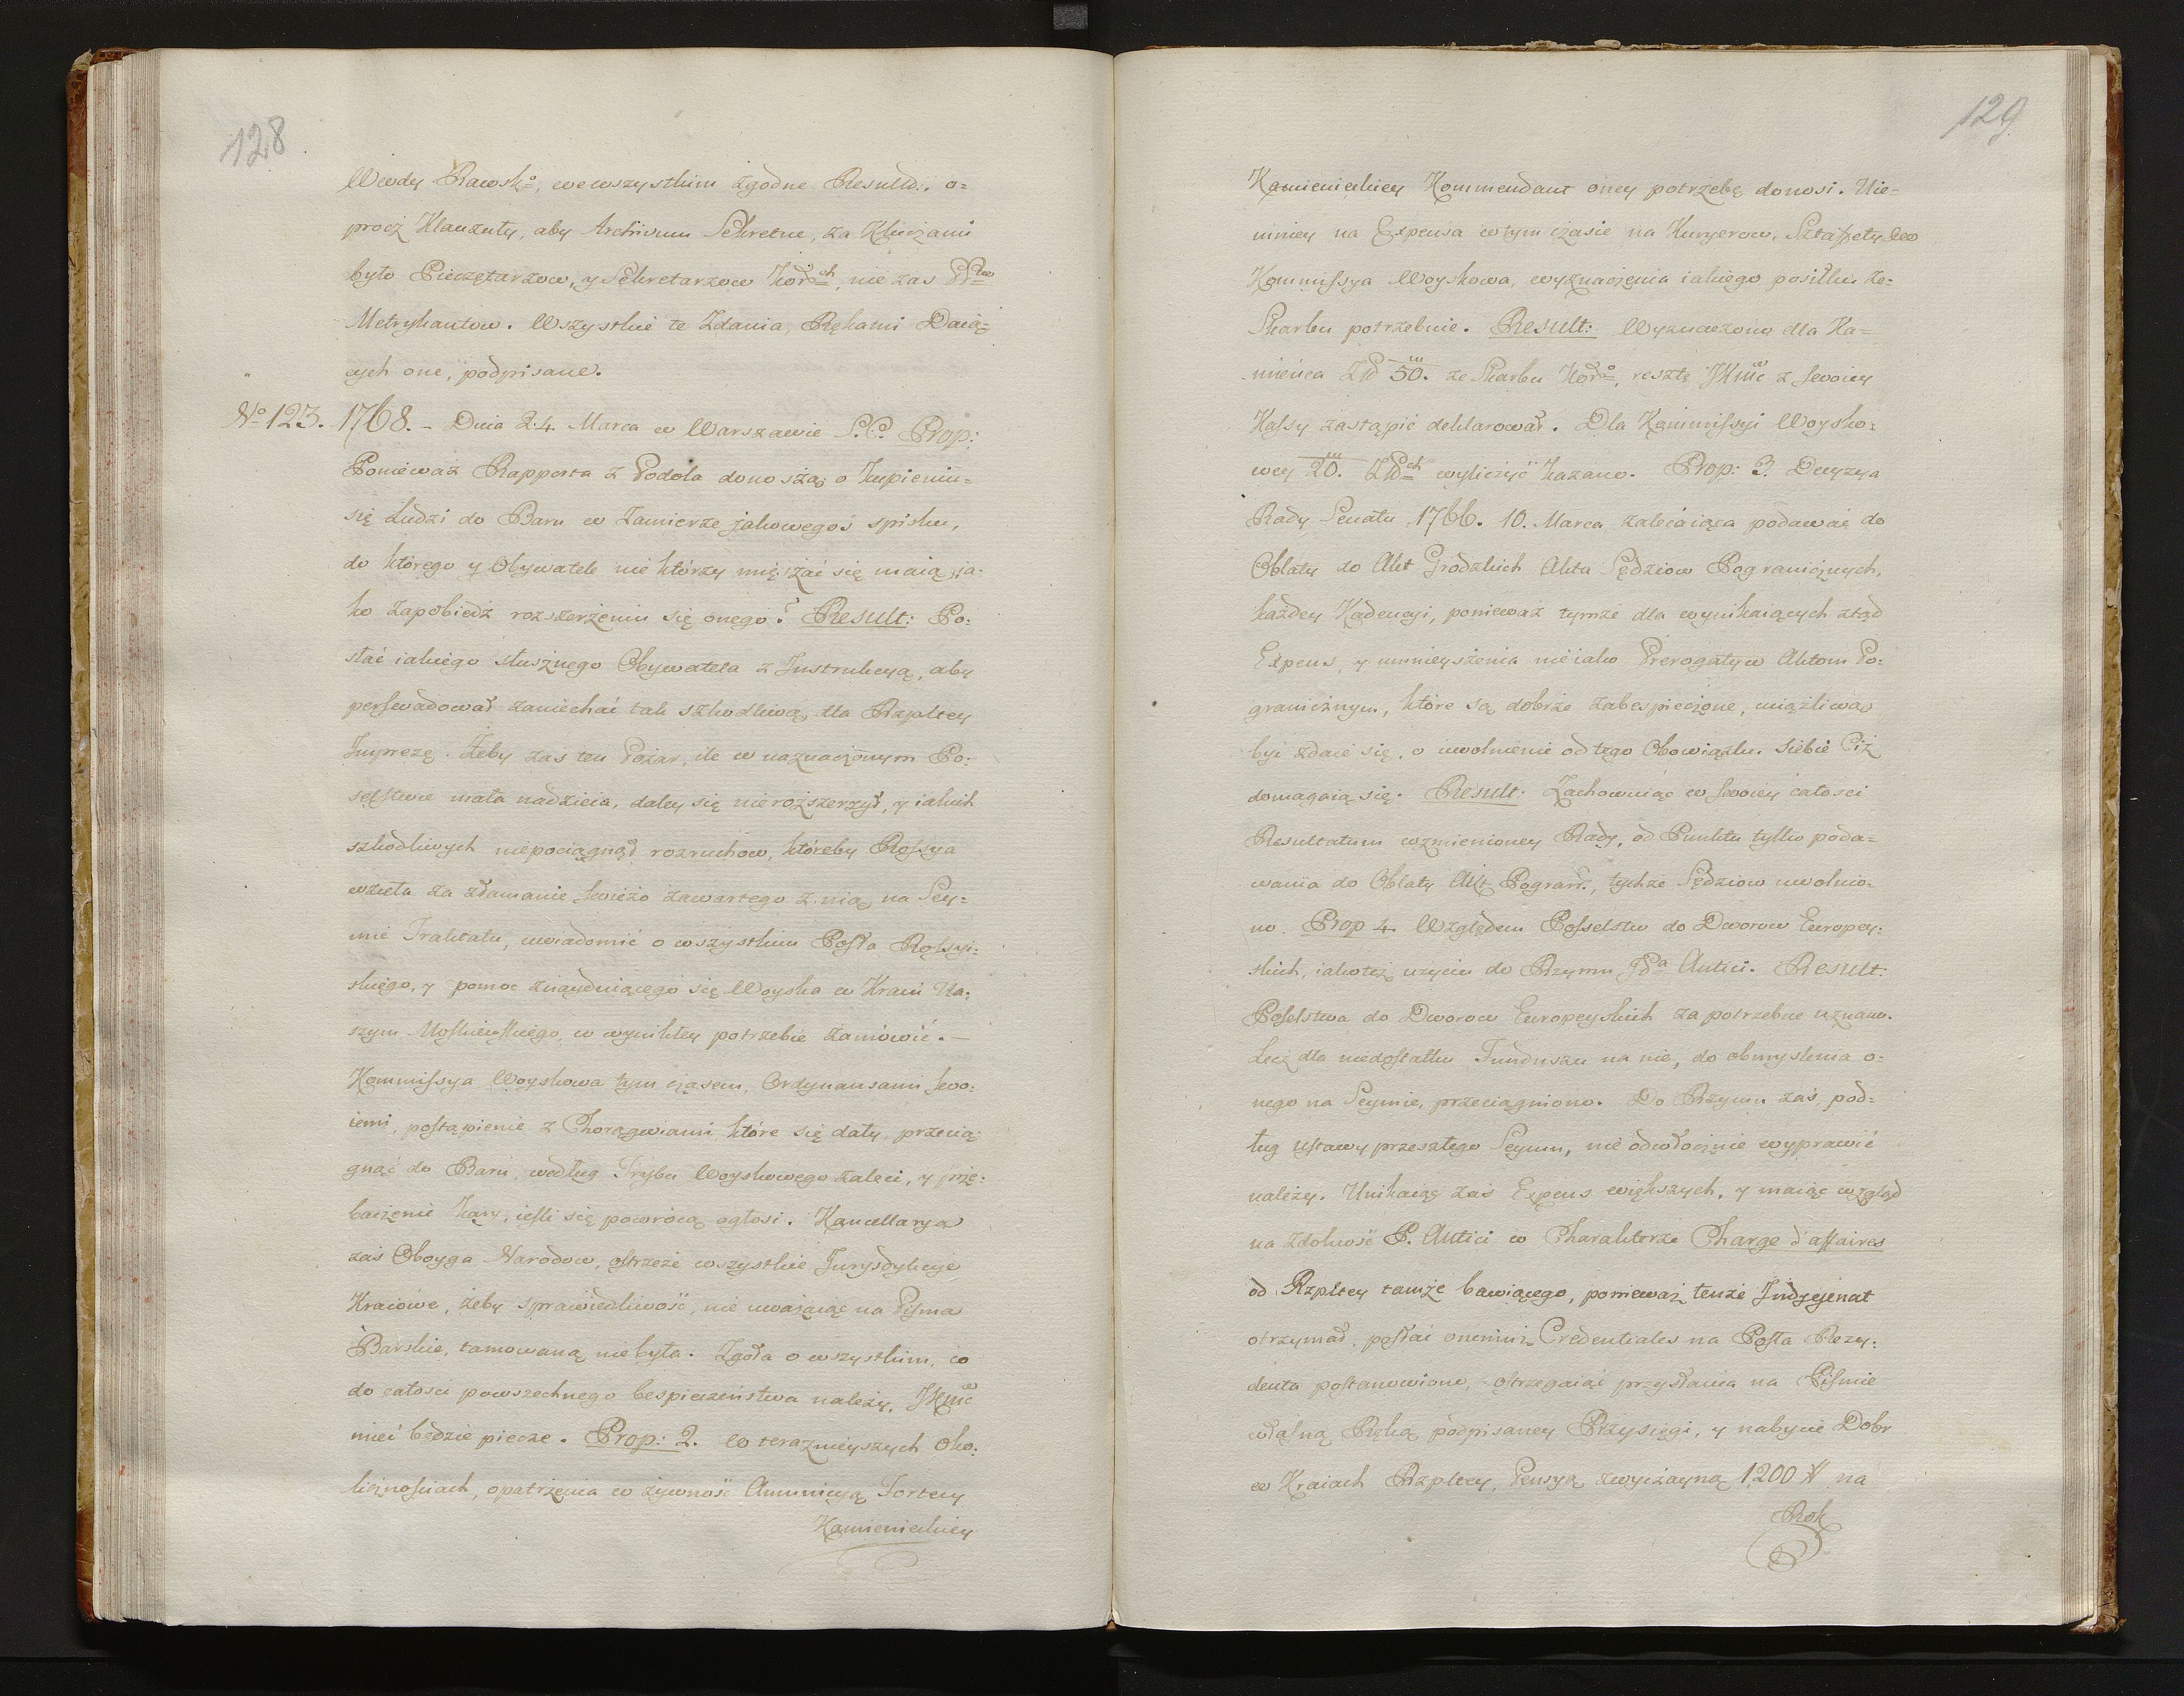 128
Wwdy Rawskº, we wszystkim zgodne Result:, o=
procz Klauzuły, aby Archivum Sekretne, za Kluczami
było Pieczętarzow, y Sekretarzow Korch, nie zas
Metrykantow. Wszystkie te Zdania, Rękami Daią=
cych one, podpisane.
Nº 123. 1768. – Dnia 24 Marca w Warszawie S.C. Prop:
Ponieważ Rapporta z Podola donoszą o kupieniu=
się Ludzi do Baru w Zamierze jakowegoś spisku,
do którego y Obywatele nie którzy mięszać się maią, ja=
ko zapobiedz rozszerzeniu się onego? Result: Po=
słać iakiego słusznego Obywatela z Instrukcyą, aby
perswadował zaniechać tak szkodliwą dla Rzpltey
Imprezę. Żeby zas ten Pożar, ile w naznaczonym Po=
selstwie mała nadzieia, daley się nierozszerzył, y iakich
szkodliwych niepociągnął rozruchow, któreby Rossya
wzieła za złamanie swieżo zawartego z nią na Sey=
mie Traktatu, uwiadomić o wszystkim Posła Rossyi=
skiego, y pomoc znayduiącego się Woyska w Kraiu Na=
szym Moskiewskiego, w wynikłey potrzebie zamówić. –
Kommissya Woyskowa tym czasem, Ordynansami swo=
iemi, postąpienie z Chorągwiami, które się dały, przecią=
gnąć do Baru, według Trybu Woyskowego zaleci, y prze=
baczenie kary, iesli się powrócą ogłosi. Kancellarya
zaś Oboyga Narodow, ostrzeże wszystkie Jurysdykcye
Kraiowe, żeby sprawiedliwość, nie uważaiąc na Pisma
Barskie, tamowaną niebyła. Zgoła o wszystkim, co
do całosci powszechnego bespieczeństwa należy, JKmć
mieć będzie piecze. Prop: 2. W terazneyszych oko=
licznosciach, opatrzenia w żywność Ammunicyą Fortecy
Kamienieckiey
129
Kamienieckiey Kommendant oney potrzebę donosi. Nie=
mniey na Expensa w tym czasie na Kuryerow, Sztafety &c
Kommissya Woyskowa, wyznaczenia iakiego posiłku ze=
Skarbu potrzebuie. Result: Wyznaczono dla Ka=
mieńca Złł 50. m ze Skarbu Korº, resztę JKmć z swoiey
Kassy zastąpić deklarował. Dla Kommissyi Woysko=
wey 20. m Złłch wyliczyć kazano. Prop: 3. Decyzya
Rady Senatu 1766. 10. Marca zalecaiąca podawać do
Oblaty do Akt Grodzkich Akta Sędziow Pogranicznych,
każdey Kadencyi, ponieważ tymże dla wynikaiących ztąd
Expens, y umnieyszenia nieiako Prerogatyw Aktom Po=
granicznym, które są dobrze zabespieczone, uciążliwa
być zdaie się, o uwolnienie od tego Obowiązku siebie Ciż
domagaią się. Result: Zachowuiąc w swoiey całosci
Resultatum wzmienioney Rady, od Punktu tylko poda=
wania do Oblaty Akt Pogran:, tychże Sędziow uwolnio=
no. Prop 4. Względem Posselstw do Dworow Europey=
skich, iakoteż użyciu do Rzymu JPa Antici. Result:
Poselstwa do Dworow Europeyskich za potrzebne uznano.
Lecz dla niedostatku Funduszu na nie, do obmyslenia o=
nego na Seymie, przeciągniono. Do Rzymu zaś, pod=
ług Ustawy przeszłego Seymu, nie odwłocznie wyprawić
należy. Unikaiąc zaś Expens większych, y maiąc wzgląd
na zdolność P. Antici w Charakterze Charge d'affaires
od Rzpltey tamże bawiącego, ponieważ tenże Indygenat
otrzymał, posłać onemuż Credentiales na Posła Rezy=
denta postanowiono, ostrzegaiąc przysłania na Pismie
własną Ręką podpisaney Przysięgi, y nabycie Dobr
w Kraiach Rzpltey, Pensyą zwyczayną 1200 # na
Rok